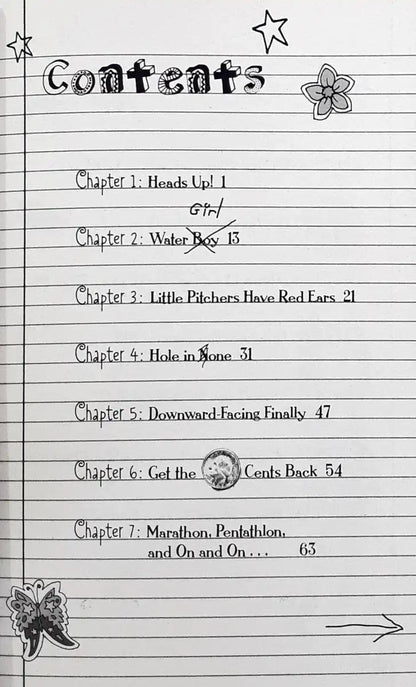 Contents
Chapter 1: Heads Up! 1
Girl
Chapter 2: Water Boy 13
Chapter 3: Little Pitchers Have Red Ears 21
Chapter 4: Hole in None 31
Chapter 5: Downward-Facing Finally 47
Chapter 6: Get the Cents Back 54
Chapter 7: Marathon, Pentathlon,
and On and On . . . 63